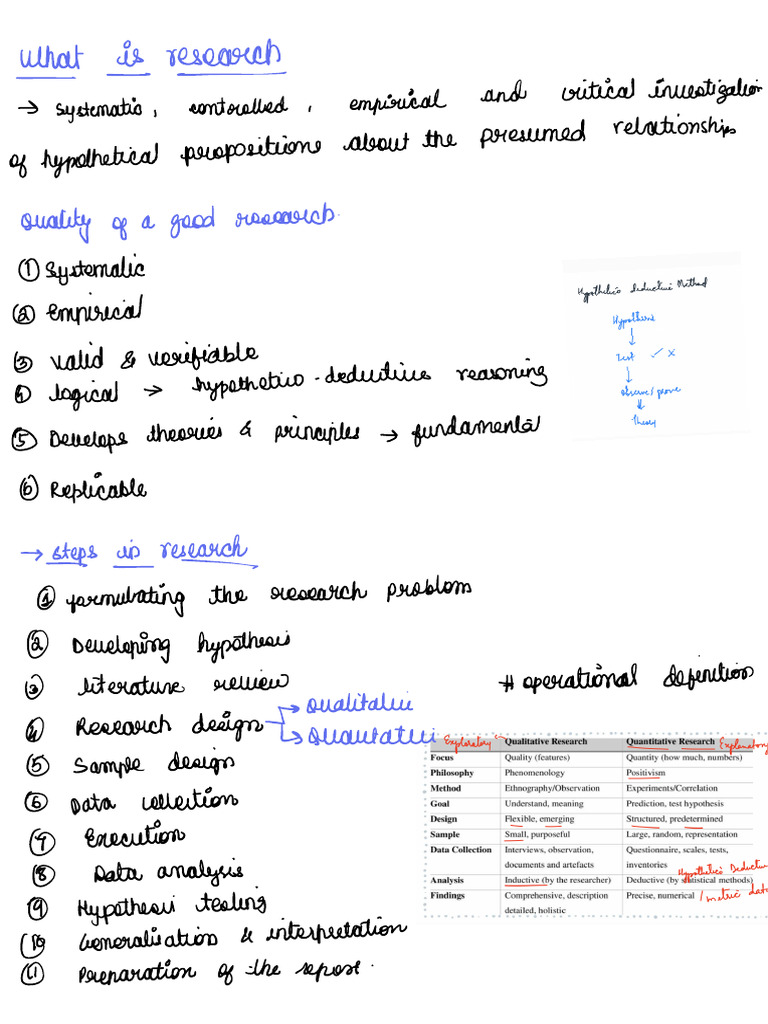 What is research
→ systematic, controlled, empirical and critical investigation
of hypothetical propositions about the presumed relationships
Quality of a good research.
① Systematic
② Empirical
③ Valid & verifiable
④ logical → hypothetico-deductive reasoning
⑤ Develops theories & principles → fundamental
⑥ Replicable
Hypothetico Deductive Method
Hypothesis
↓
Test ✓ x
↓
Observe/prove
↓
Theory
→ steps in research
① formulating the research problem
② Developing hypothesis
③ literature review
④ Research design → Qualitative
→ Quantative
⑤ Sample design
⑥ Data collection
⑦ Execution
⑧ Data analysis
⑨ Hypothesis testing
⑩ Generalisation & interpretation
⑪ Preparation of the report.
# operational definition
Exploratory Qualitative Research Quantitative Research Explanatory
Focus Quality (features) Quantity (how much, numbers)
Philosophy Phenomenology Positivism
Method Ethnography/Observation Experiments/Correlation
Goal Understand, meaning Prediction, test hypothesis
Design Flexible, emerging Structured, predetermined
Sample Small, purposeful Large, random, representation
Data Collection Interviews, observation, Questionnaire, scales, tests,
documents and artefacts inventories
Hypothetico Deductive
Analysis Inductive (by the researcher) Deductive (by statistical methods)
Findings Comprehensive, description Precise, numerical / metric data
detailed, holistic